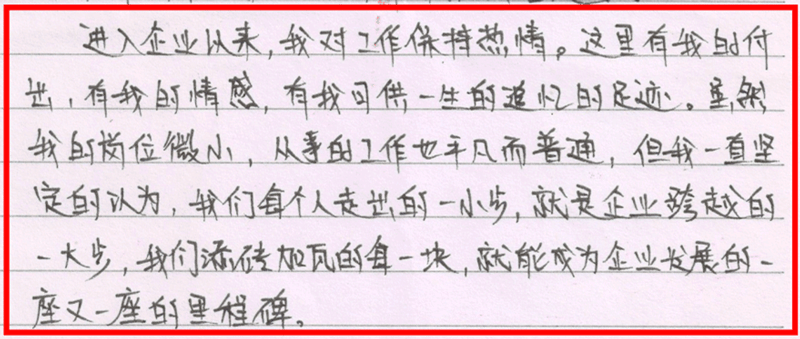 进入企业以来，我对工作保持热情。这里有我的付
出，有我的情感，有我可供一生的追忆的足迹。虽然
我的岗位微小，从事的工作也平凡而普通，但我一直坚
定的认为，我们每个人走出的一小步，就是企业跨越的
一大步，我们添砖加瓦的每一块，就能成为企业发展的一
座又一座的里程碑。